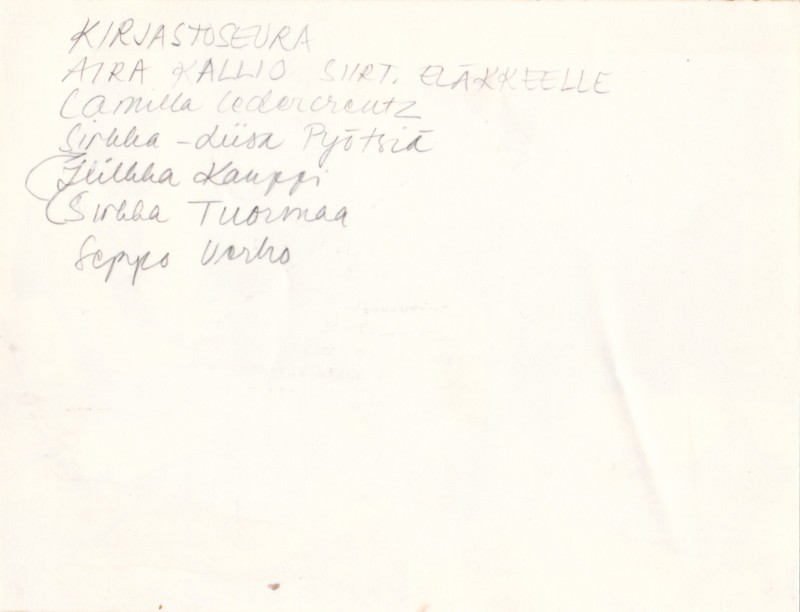 KIRJASTOSEURA
AIRA KALLIO SIIRT. ELÄKKEELLE
Camilla Cedercreutz
Sirkka-Liisa Pyötsiä
Hilkka Kauppi
Sirkka Tuormaa
Seppo Verho